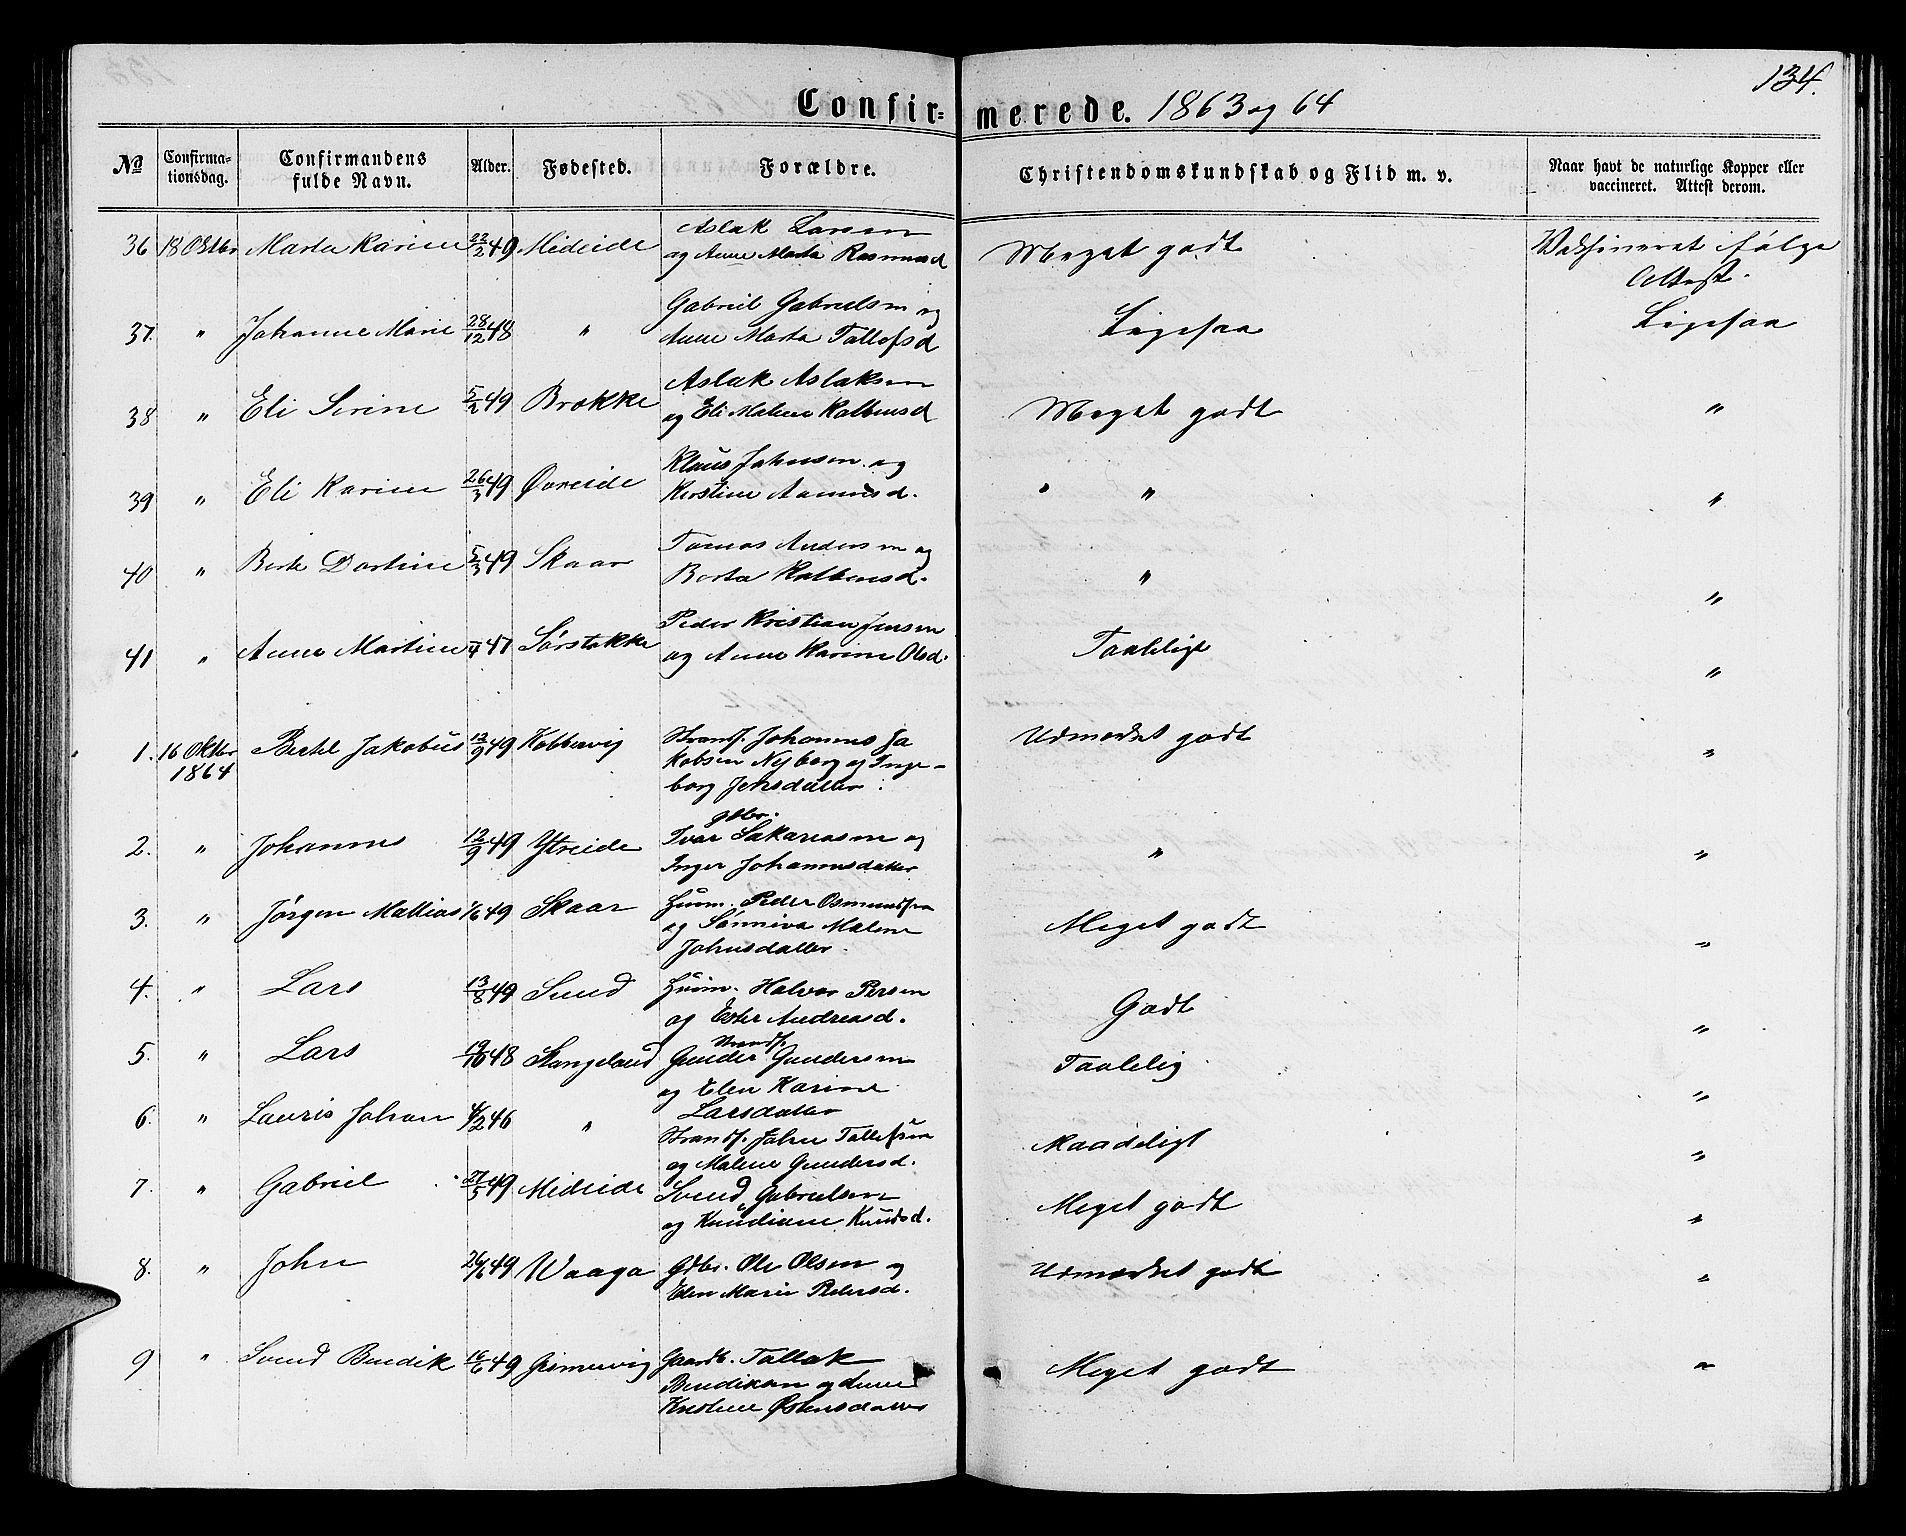 134.
Confirmerede. 1863 og 64
No
Confirmationsdag.
Confirmandens fulde Navn.
Alder.
Fødested.
Forældre.
Christendomskundskab og Flid m. v.
Naar havt de naturlige Kopper eller vaccineret. Attest derom.
36 18 Oktbr Marta Karine 22/2 49 Mideide Aslak Larsen Meget godt Vaksineret ifølge
og Anne Marta Rasmusd Attest.
37. " Johanne Marie 28/12 48 " Gabriel Gabrielsen og Ligesaa Ligesaa
Anne Marta Tallofsd
38 " Eli Serine 5/2 49 Brekke Aslak Aslaksen Meget godt "
og Eli Malene Kolbensd
39 " Eli Karine 26/3 49 Øvreide Klaus Johnsen og " "
Kerstine Aamunsd.
40 " Berte Dortine 5/3 49 Skaar Tomas Andersen og " "
Berta Kolbensd.
41 " Anne Martine 47 Sørstokke Peder Kristian Jensen Taaleligt "
og Anne Karine Olsd.
1. 16 Oktbr Bertel Jakobus 12/9 49 Kobbervig Strands. Johannes Ja Udmærket godt "
1864 kobsen Nyborg og Inge-
borg Jensdatter.
gdbr.
2. " Johannes 12/9 49 Ytreide Ivar Sakariasen og " "
Inger Johannesdatter
3. " Jørgen Mathias 1/6 49 Skaar Huusm. Peder Osmundsen Meget godt "
og Sønneva Malene
Johnsdatter.
4. " Lars 13/8 49 Sund Huusm. Halvor Persen Godt "
og Ester Andreasd.
Strands.
5. " Lars 19/10 48 Stangeland Gunder Gundersen Taalelig "
og Elen Karine
Larsdatter
6. " Lauris Johan 4/2 46 " Strands. John Tollefsen Maadeligt "
og Malene Gundersd.
7. " Gabriel 27/5 49 Mideide Svend Gabrielsen Meget godt "
og Knudiane Knudsd.
8. " John 26/6 49 Waaga Gdbr. Ole Olsen og Udmærket godt "
Elen Marie Pedersd.
9 " Svend Bendik 16/6 49 Grimervig Gaardb. Tallak Meget godt "
Bendiksen og Anne
Kristine Østensdatter